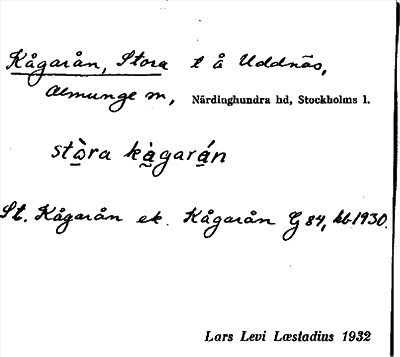 Kågarån, Stora t å Uddnäs,
Almunge sn, Närdinghundra hd, Stockholms l.
stò̲ra kà̰gará̲n
St. Kågarån ek. Kågarån G 84, kb. 1930.
Lars Levi Læstadius 1932